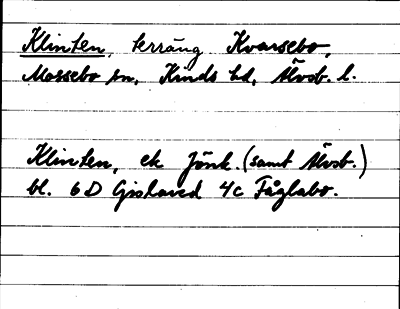 Klinten, terräng Kvarsebo,
Mossebo sn, Kinds hd, Älvsb. l.
Klinten, ek Jönk. (samt Älvsb.)
bl. 6D Gislaved 4c Fåglabo.